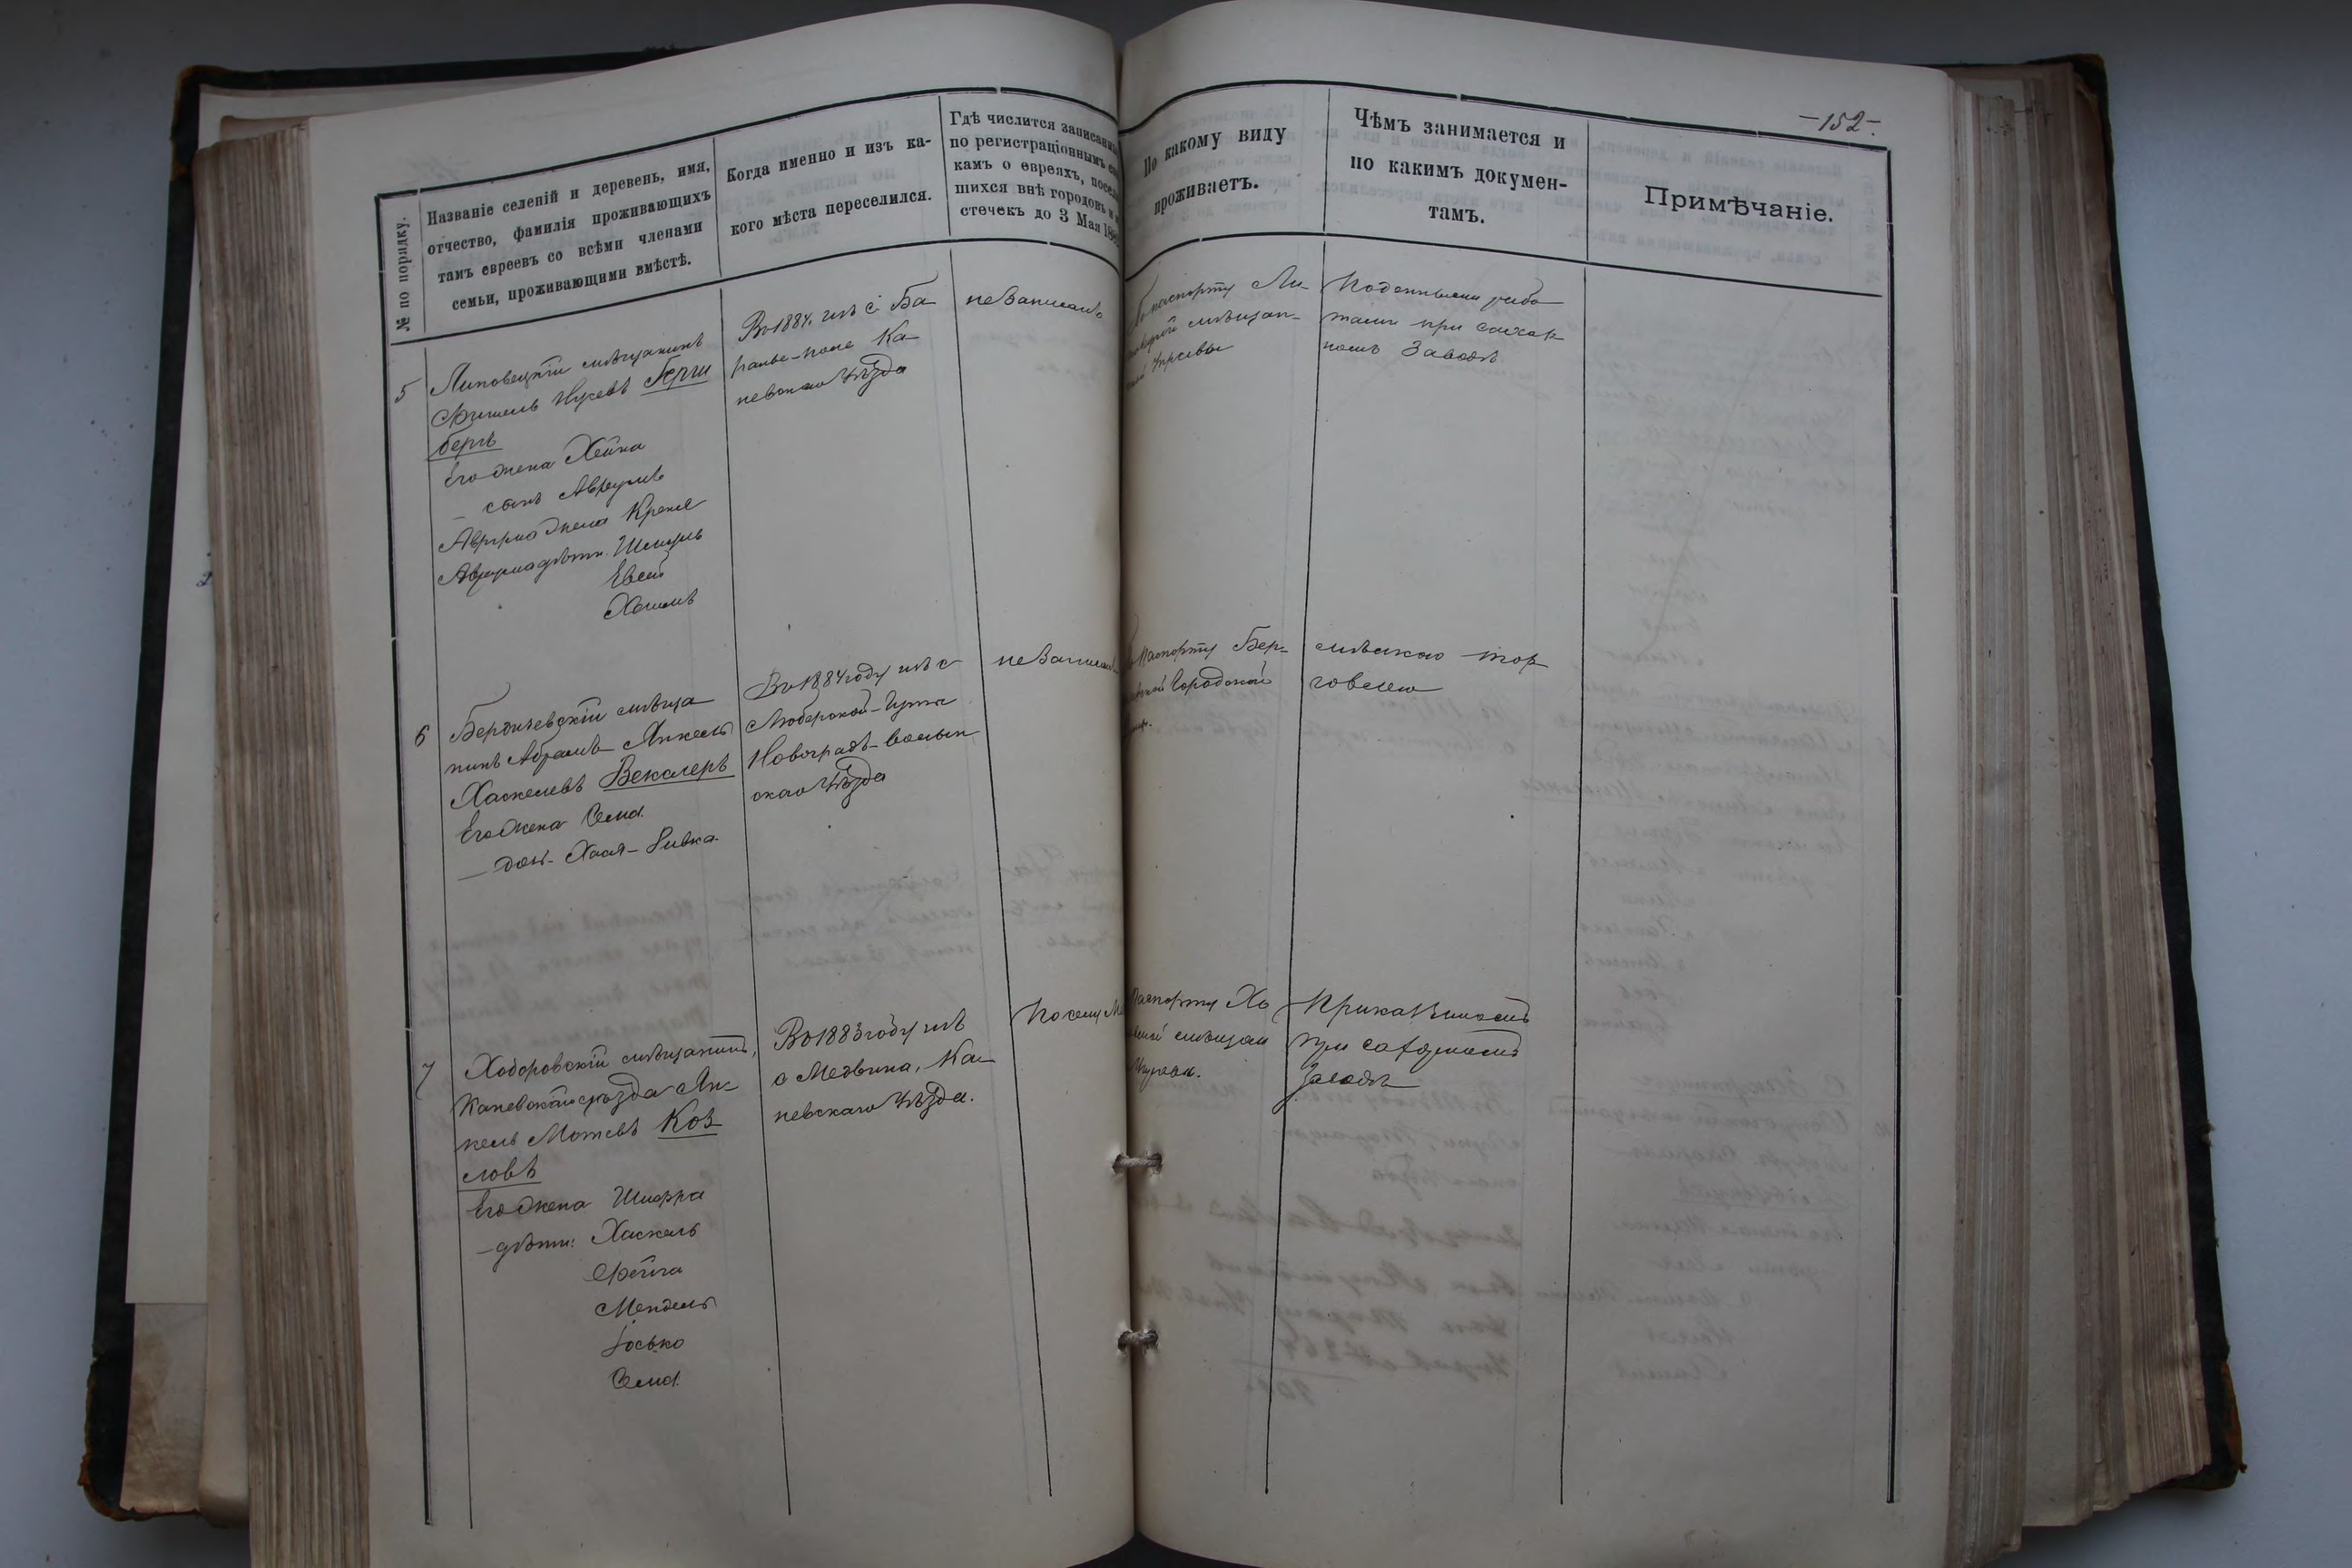 -152-.
№ по порядку.
Названіе селеній и деревень, имя,
отчество, фамилія проживающихъ
тамъ евреевъ со всѣми членами
семьи, проживающими вмѣстѣ.
Когда именно и изъ ка-
кого мѣста переселился.
Гдѣ числится
по регистраціоннымъ
камъ о евреяхъ,
шихся внѣ городовъ и
стечекъ до 3 Мая
По какому виду
проживаетъ.
Чѣмъ занимается и
по какимъ докумен-
тамъ.
Примѣчаніе.
5
Липовецкій мѣщанинъ
Фишель Герш
бергъ
Его жена Хейка
– сынъ Аврумъ
Аврума жена Крейня
Аврума дѣти. Шмуль
Евсей
Во 1884. изъ с. Ба
Ка
невскаго Уѣзда
не записанъ
По паспорту Ли
мѣщан-
Управы
Поденными рабо
тами при сахар
номъ Заводѣ
6
Бердичевскій мѣща
нинъ Абрамъ Янкель
Хаскелевъ Векслеръ
Его жена Сема.
– доч. Хая-Ривка.
Во 1884 году изъ с
Люберской-Гуты
Новоградъ-волын
скаго Уѣзда
не записанъ
паспорту Бер-
Городской
мѣлкою тор
говлею
7
Ходоровскій мѣщанинъ,
Каневскаго уѣзда Ян-
кель Мотевъ Коз
ловъ
Его жена Шифра
– дѣти: Хаскель
Фейга
Мендель
Іосько
Сема.
Во 1883 году изъ
с Медвина, Ка-
невскаго Уѣзда.
По селу
паспорту Хо
мѣщан
Управы.
Прикащикомъ
при сахарномъ
Заводѣ